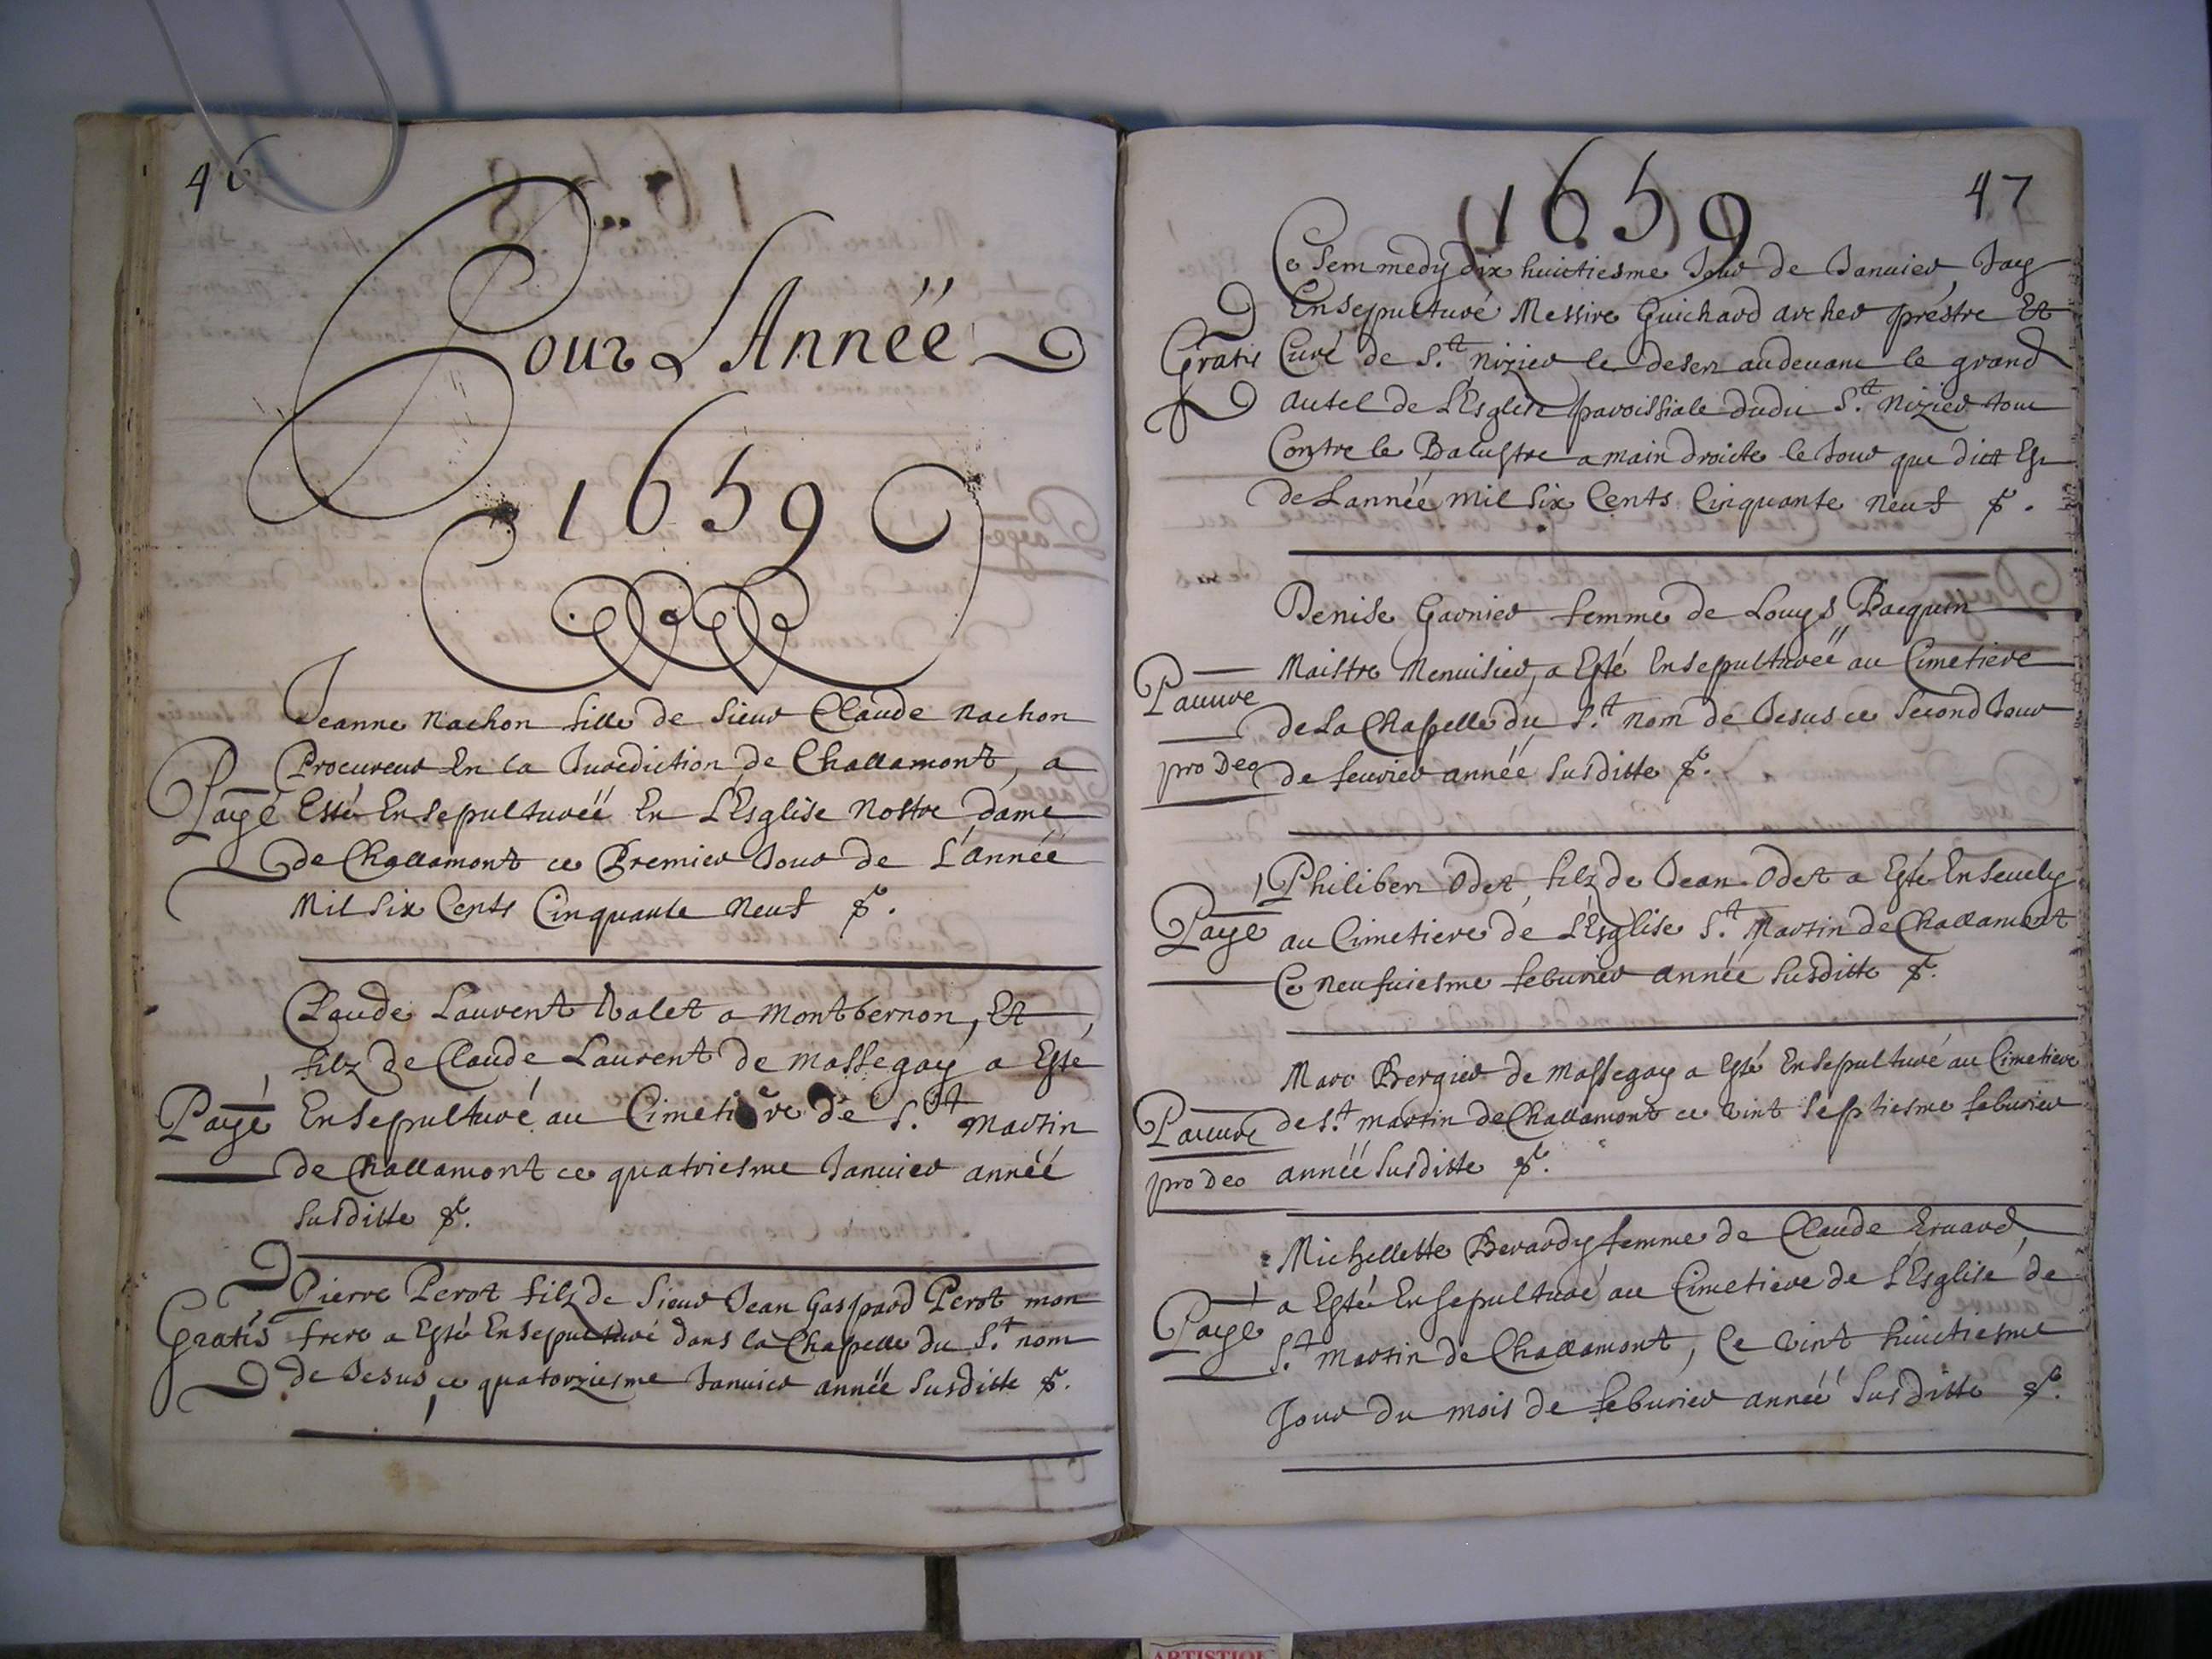 46
Pour L'Année
1659
Jeanne Nachon fille de Sieur Claude Nachon
Procureur En la Jurediction de Challamont, a
Payé
Esté Ensepulturéé En L'Esglise Nostre dame
de Challamont ce Premier Jour de L'année
Mil Six Cents Cinquante Neuf &.
Claude Laurent Valet a Montbernon, Et
filz de Claude Laurent de Massegay a Esté
Payé
Ensepulturé au Cimetiere de S.t Martin
de Challamont ce quatriesme Januier annéé
susditte &.
Pierre Perot filz de Sieur Jean Gaspard Perot mon
Gratis
frere a Esté Ensepulturé dans la Chapelle du S.t nom
de Jesus ce quatorziesme Januier annéé Susditte &.
1659
47
Ce Semmedy dix huictiesme Jour de Januier, Jay
Ensepulturé Messire Guichard archer prestre Et
Gratis
Curé de S.t Nizier le desert audeuant le grand
Autel de L'Esglise paroissiale dudit S.t Nizier tout
Contre le Balustre a main droicte le Jour que dict Est
de Lannéé Mil Six Cents Cinquante Neuf &.
Denise Garnier femme de Louys Bacquin
Maistre Menuisier, a Esté Ensepulturéé au Cimetiere
Pauure
de La Chapelle du S.t Nom de Jesus ce Second Jour
pro Deo
de feurier annéé Susditte &.
Philibert Odet filz de Jean Odet a Esté Enseuely
Payé
au Cimetiere de L'Esglise S.t Martin de Challamont
Ce neufuiesme feburier annéé Susditte &.
Marc Bergier de Massegay a Esté Ensepulturé au Cimetiere
Pauure
de S.t Martin de Challamont ce vint septiesme feburier
pro Deo
annéé Susditte &.
Michellette Berardy femme de Claude Eruard,
a Esté Ensepulturé au Cimetiere de L'Esglise de
Payé
S.t Martin de Challamont, Ce vint huictiesme
Jour du mois de feburier annéé Susditte &.